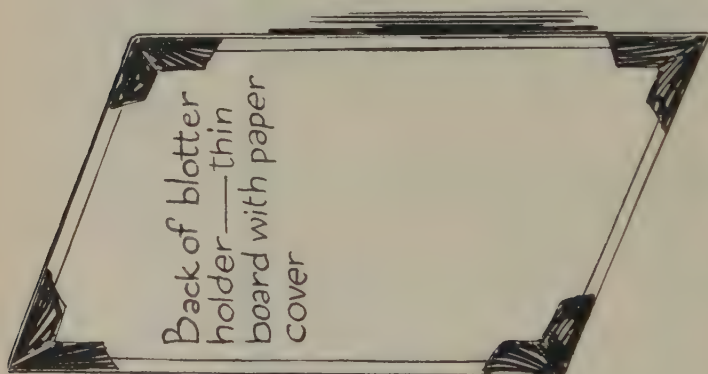 Back of blotter
holder—thin
board with paper
cover